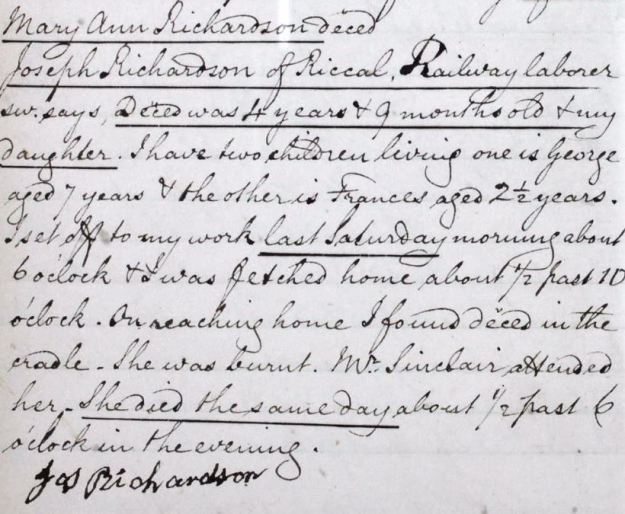 Mary Ann Richardson deced
Joseph Richardson of Riccal, Railway laborer
sw. says, Deced was 4 years & 9 months old & my
daughter. I have two children living one is George
aged 7 years & the other is Frances aged 2½ years.
I set off to my work last Saturday morning about
6 oclock & I was fetched home about ½ past 10
o'clock. On reaching home I found deced in the
cradle - She was burnt. Mr. Sinclair attended
her - She died the same day about ½ past 6
o'clock in the evening.
Jos Richardson